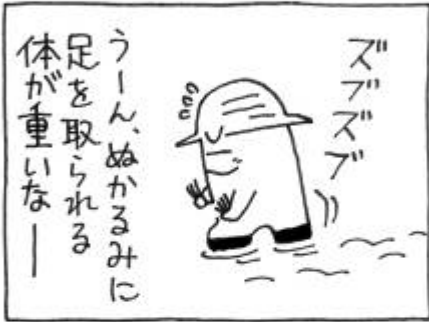 ズブズブ
うーん、ぬかるみに
足を取られる
体が重いなー